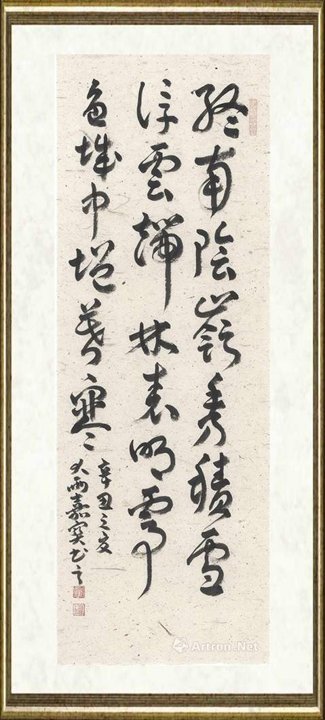 終南陰嶺秀積雪
浮雲端林表明霽
色城中增暮寒
辛丑之夏
大雨嘉书之
Artron.Net